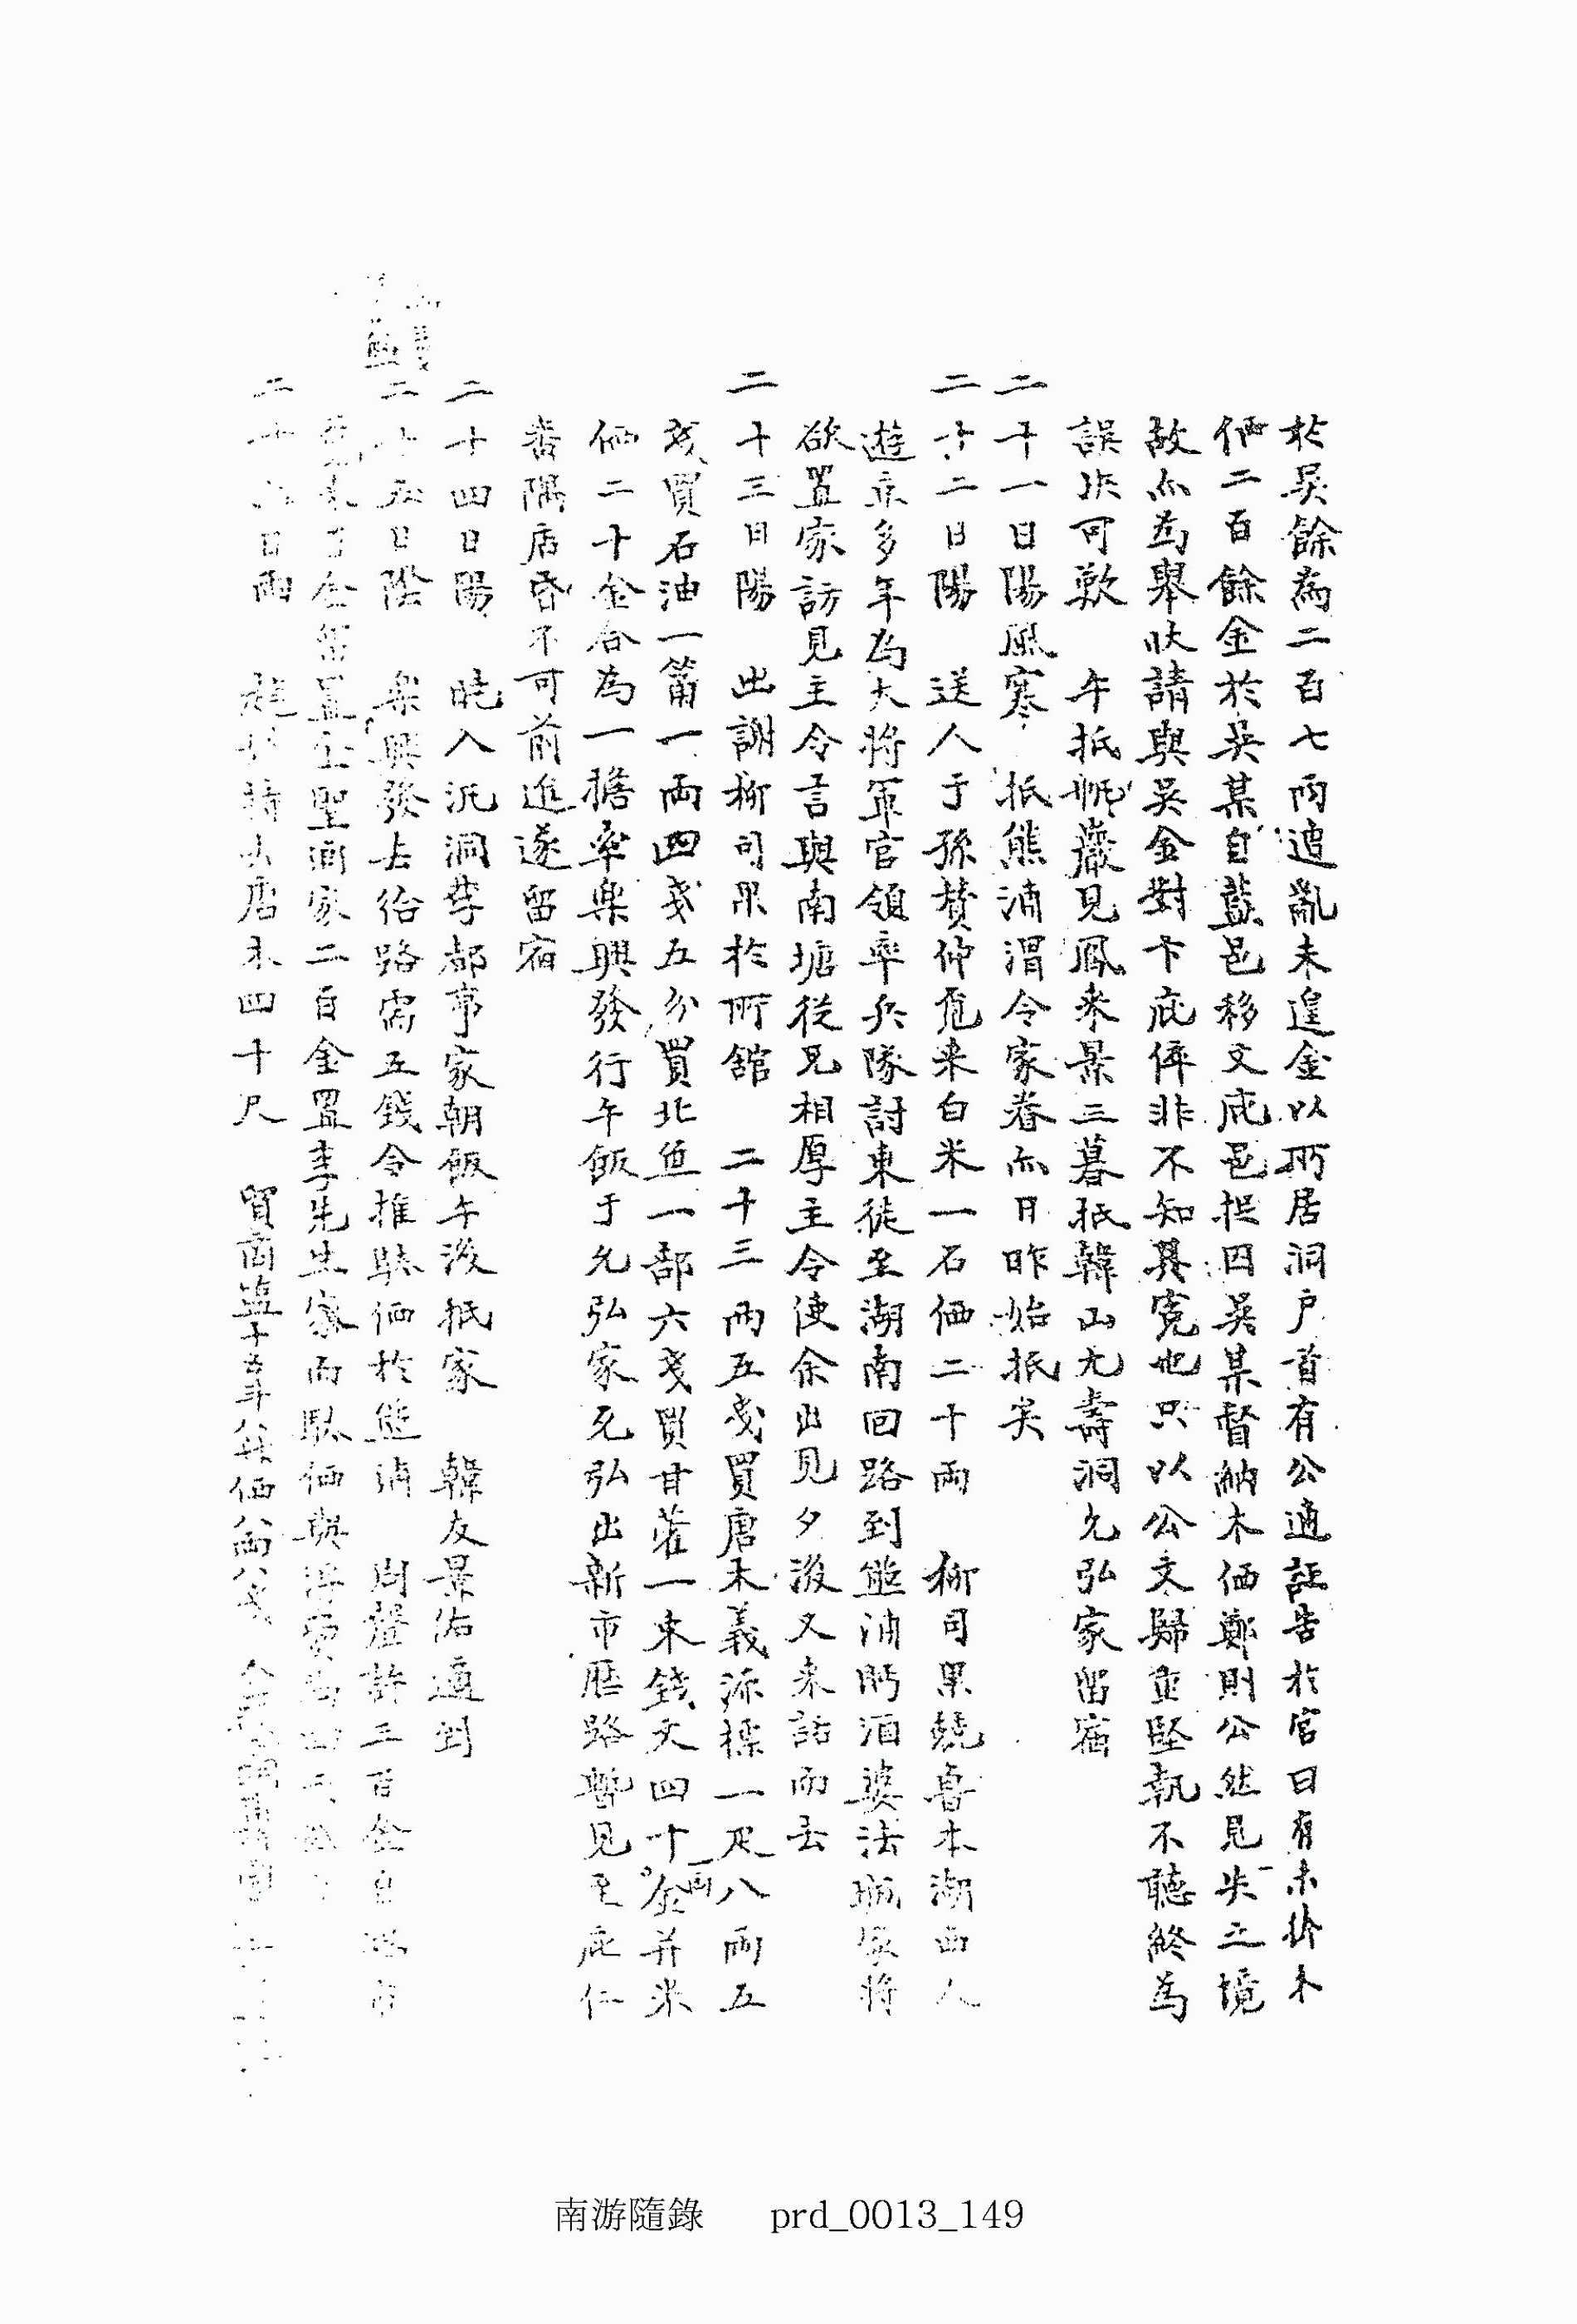 於吳餘爲二百七兩適亂未遑金以所居洞戶首有公適誣告於官曰有未捧木
価二百餘金於吳某自藍邑移文庇邑捉囚吳某督納木価鄭則公然見失之境
故亦爲舉狀請與吳金對卞庇倅非不知其寃也只以公文歸重堅執不聽終爲
誤決可歎 午抵獅巖見鳳來景三暮抵韓山元壽洞允弘家留宿
二十一日陽風寒 抵熊浦渭令家眷亦日昨始抵矣
二十二日陽 送人于孫贊仲處來白米一石価二十兩 柳司果兢魯本湖西人
遊京多年爲大將軍官領率兵隊討東徒至湖南回路到熊浦眄酒婆法瓶家將
欲置家訪見主令言與南塘從兄相厚主令使余出見夕後又來話而去
二十三日陽 出謝柳司果於所舘 二十三兩五戔買唐木義源標一疋八兩五
戔買石油一筩一兩四戔五分買北魚一部六戔買甘藿一束錢文四十一兩金并米
価二十金合爲一擔率樂興發行午飯于允弘家允弘出新市歷路暫見至庇仁
番隅店昏不可前進遂留宿
二十四日陽 曉入沉洞李都事家朝飯午後抵家 韓友景佑適到
二十五日陰 樂興發去給路需五錢令推駄価於熊浦 周聲許三百金自
金留置 聖酒家二百金置李先生家而駄価與
二十六日雨 店木四十尺 貿商 十五斗八升価八兩八戔